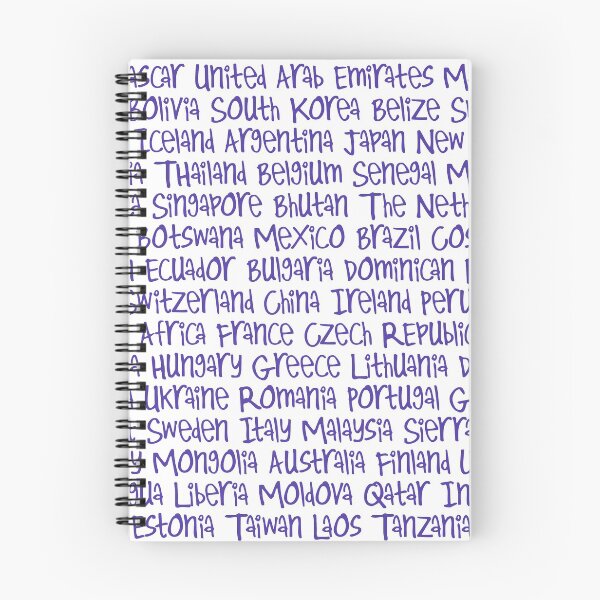 ascar United Arab Emirates M
Bolivia South Korea Belize S
Iceland Argentina Japan New
Thailand Belgium Senegal M
Singapore Bhutan The Neth
Botswana Mexico Brazil Cos
Ecuador Bulgaria Dominican
witzerland China Ireland Peru
Africa France Czech Republic
Hungary Greece Lithuania D
Ukraine Romania Portugal G
Sweden Italy Malaysia Sierra
Mongolia Australia Finland U
gua Liberia Moldova Qatar In
Estonia Taiwan Laos Tanzania